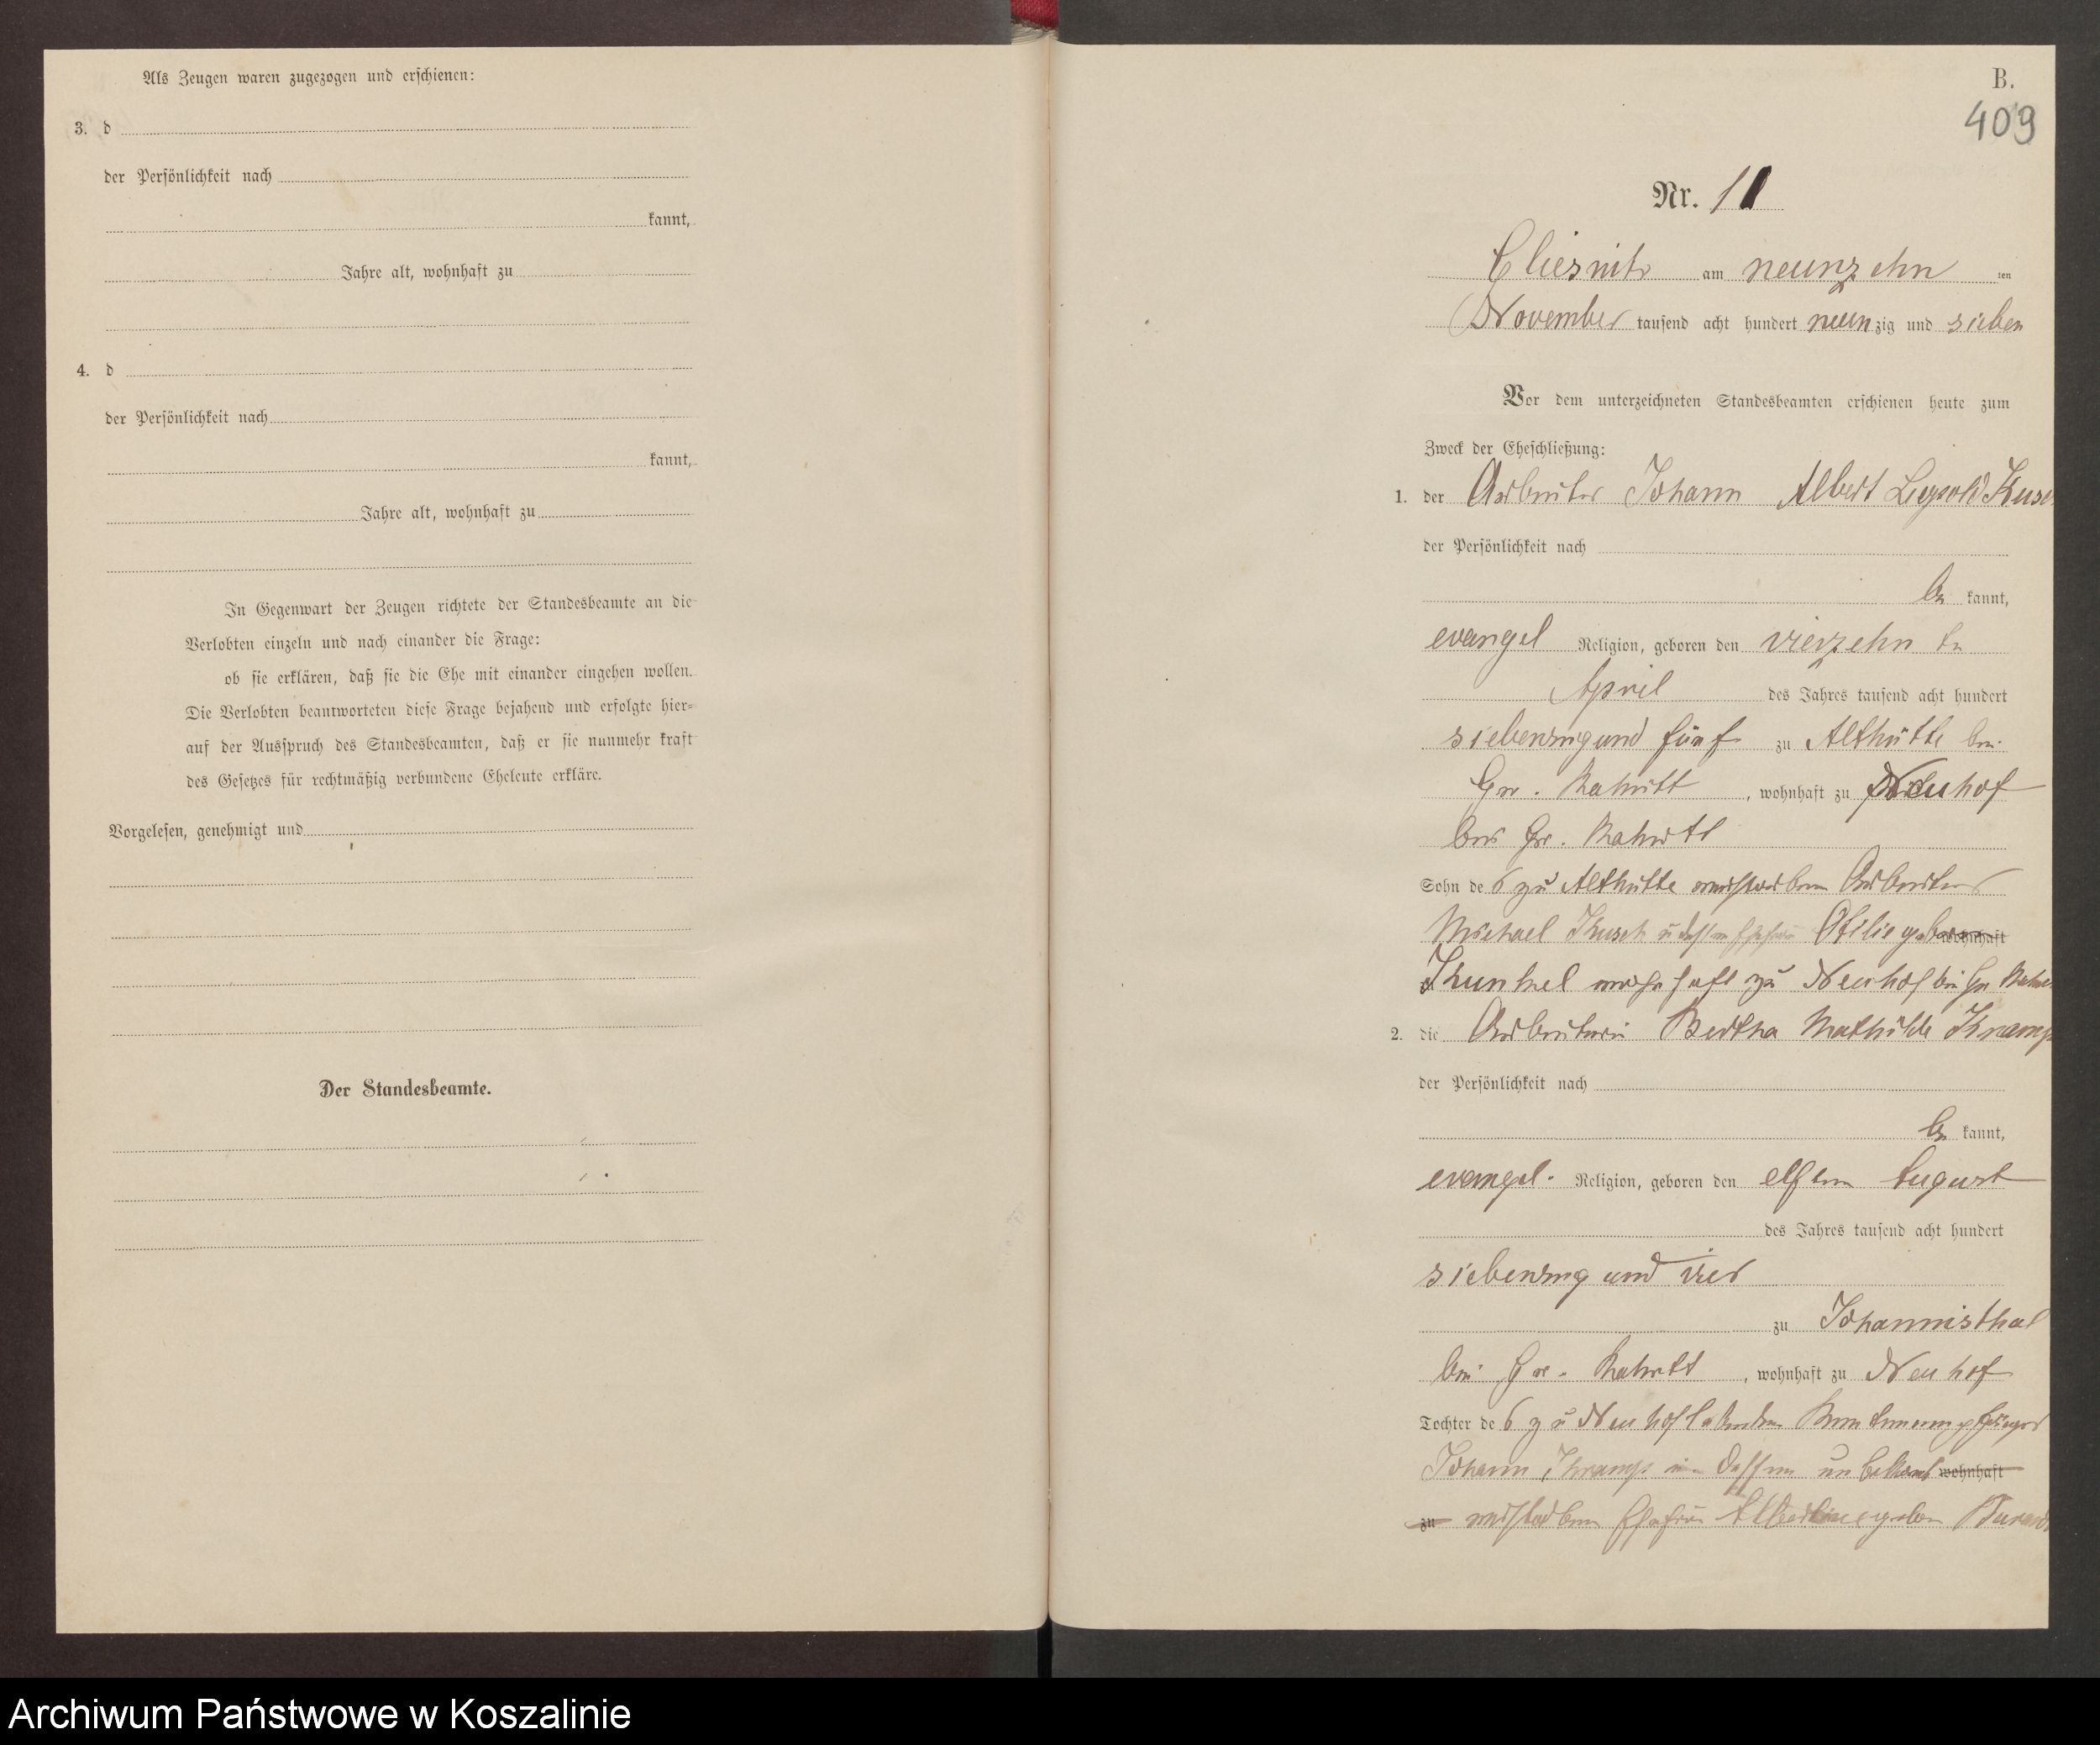 Als Zeugen waren zugezogen und erschienen:
3. d
der Persönlichkeit nach
kannt,
Jahre alt, wohnhaft zu
4. d
der Persönlichkeit nach
kannt,
Jahre alt, wohnhaft zu
In Gegenwart der Zeugen richtete der Standesbeamte an die
Verlobten einzeln und nach einander die Frage:
ob sie erklären, daß sie die Ehe mit einander eingehen wollen.
Die Verlobten beantworteten diese Frage bejahend und erfolgte hier-
auf der Ausspruch des Standesbeamten, daß er sie nunmehr kraft
des Gesetzes für rechtmäßig verbundene Eheleute erkläre.
Vorgelesen, genehmigt und
Der Standesbeamte.
B.
409
Nr. 11
am neunzehn ten
November tausend acht hundert neunzig und sieben
Vor dem unterzeichneten Standesbeamten erschienen heute zum
Zweck der Eheschließung:
1. der Arbeiter Johann Albert Leopold
der Persönlichkeit nach
be kannt,
evangel Religion, geboren den vierzehn ten
April des Jahres tausend acht hundert
siebenzig und fünf zu Althütte bei
Gr. , wohnhaft zu Neuhof
bei Gr.
Sohn des zu Althütte verstorbenen Arbeiters
Michael Kusch u dessen Ehefrau Otilie geboren wohnhaft
zu Kunkel wohnhaft zu Neuhof bei Gr
2. die Arbeiterin Bertha Mathilde
der Persönlichkeit nach
be kannt,
evangel. Religion, geboren den elften August
des Jahres tausend acht hundert
siebenzig und vier
zu Johannisthal
bei Gr. , wohnhaft zu Neuhof
Tochter des zu Neuhof lebenden Rentenempfänger
Johann dessen wohnhaft
zu verstorbenen Ehefrau Albertine geboren
Archiwum Państwowe w Koszalinie